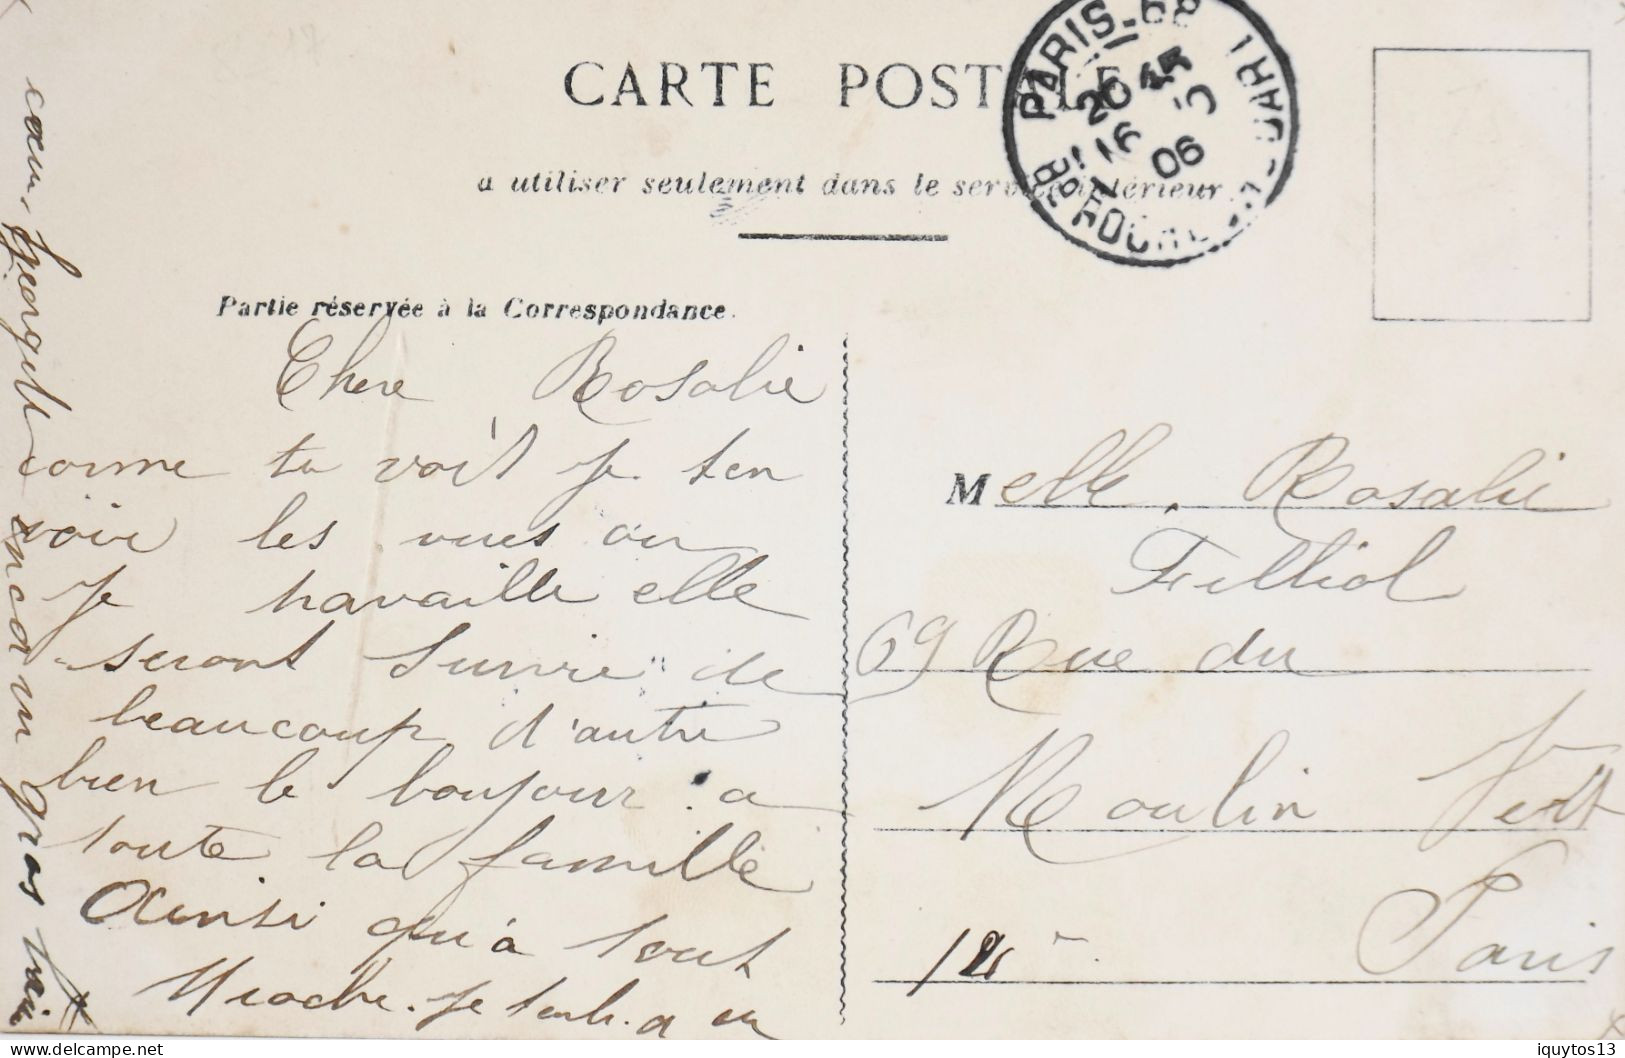 CARTE POSTALE
a utiliser seulement dans le service intérieur
PARIS-68
20 45
16
06
Partie réservée à la Correspondance.
Chere Rosalie
comme tu voit je ten
voir les vues ou
je travaille elle
seront suivre de
beaucoup d'autre
bien le boujour a
toute la famille
Ainsi qu'à tout
je
coeur
encor un gros
Melle. Rosalie
Filliol
69 Rue du
Moulin Vert
Paris
iquytos13